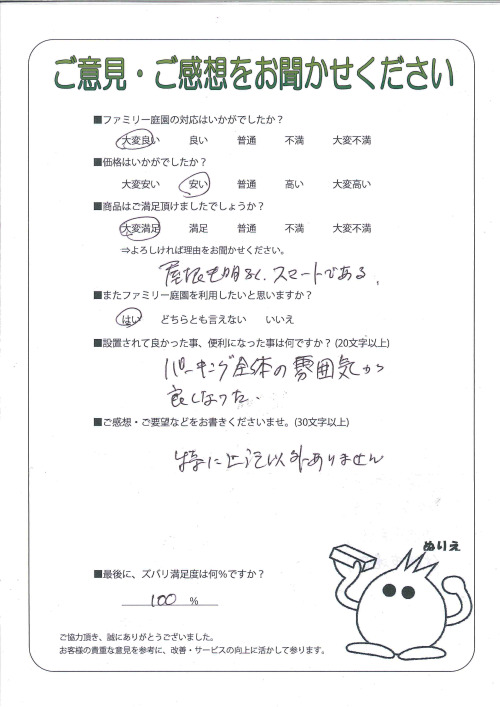 ご意見・ご感想をお聞かせください
■ファミリー庭園の対応はいかがでしたか?
大変良い 良い 普通 不満 大変不満
■価格はいかがでしたか?
大変安い 安い 普通 高い 大変高い
■商品はご満足頂けましたでしょうか?
大変満足 満足 普通 不満 大変不満
⇒よろしければ理由をお聞かせください。
屋根も明るく、スマートである、
■またファミリー庭園を利用したいと思いますか?
はい どちらとも言えない いいえ
■設置されて良かった事、便利になった事は何ですか? (20文字以上)
パーキング全体の雰囲気から
良くなった.
■ご感想・ご要望などをお書きくださいませ。(30文字以上)
特に上記以外ありません
ぬりえ
■最後に、ズバリ満足度は何%ですか?
100 %
ご協力頂き、誠にありがとうございました。
お客様の貴重な意見を参考に、改善・サービスの向上に活かして参ります。